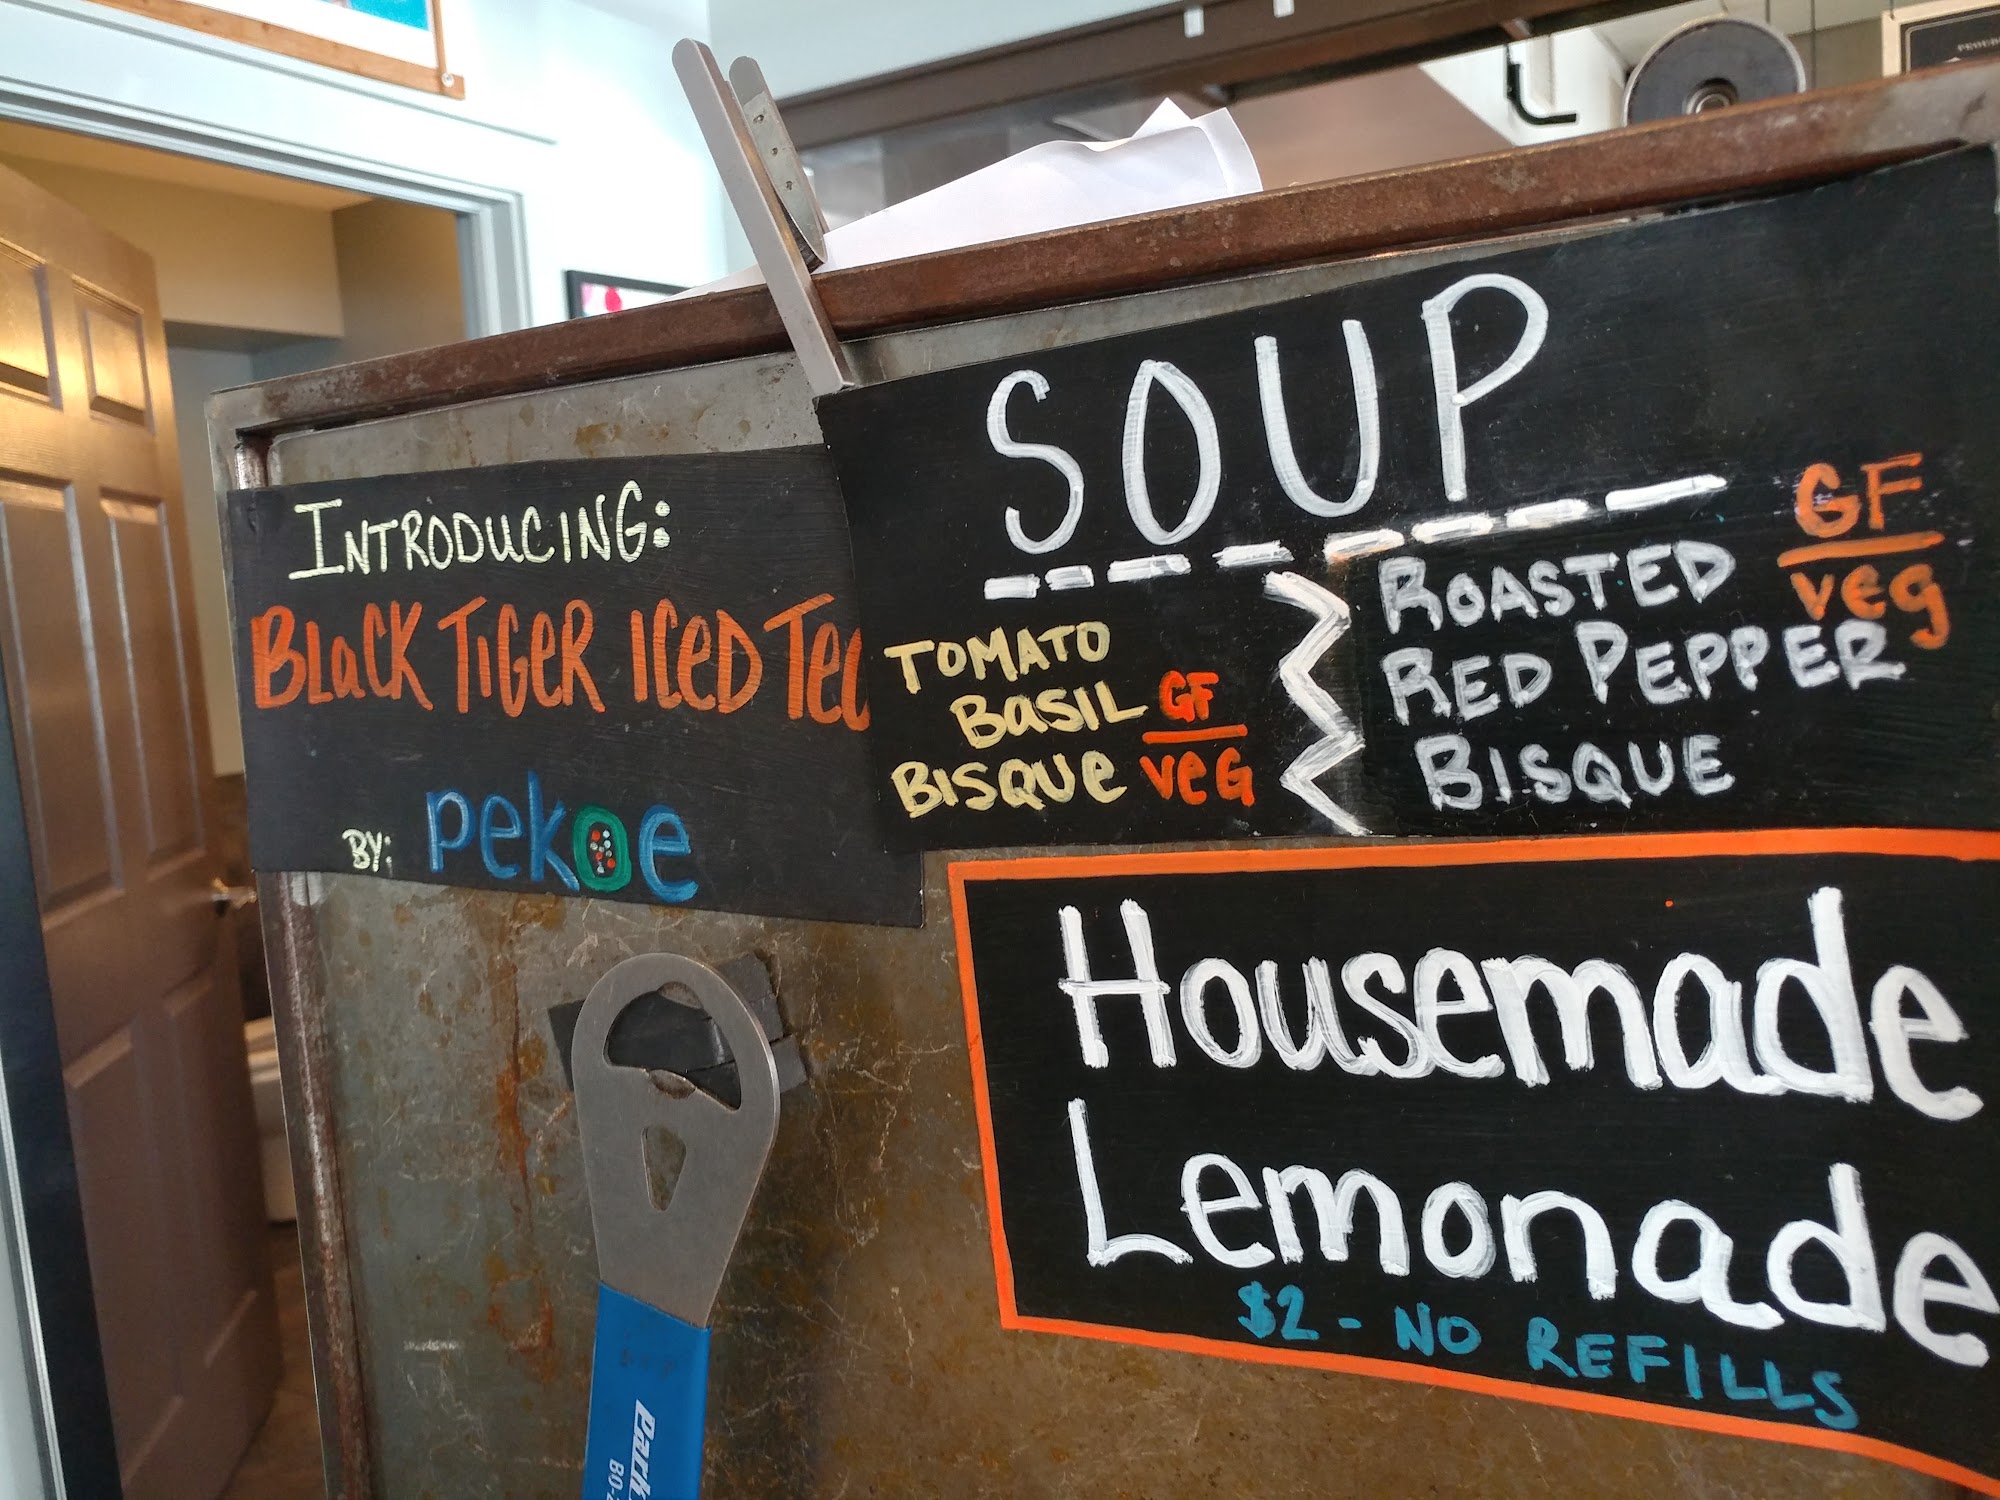 INTRODUCING:
BLaCK TIGER ICeD Te
BY: pekoe
SOUP
TOMATO
BaSIL GF
BISQUe veG
ROASTED GF
veg
RED PEPPER
BISQUE
Housemade
Lemonade
$2 - NO REFILLS
Park
BO-